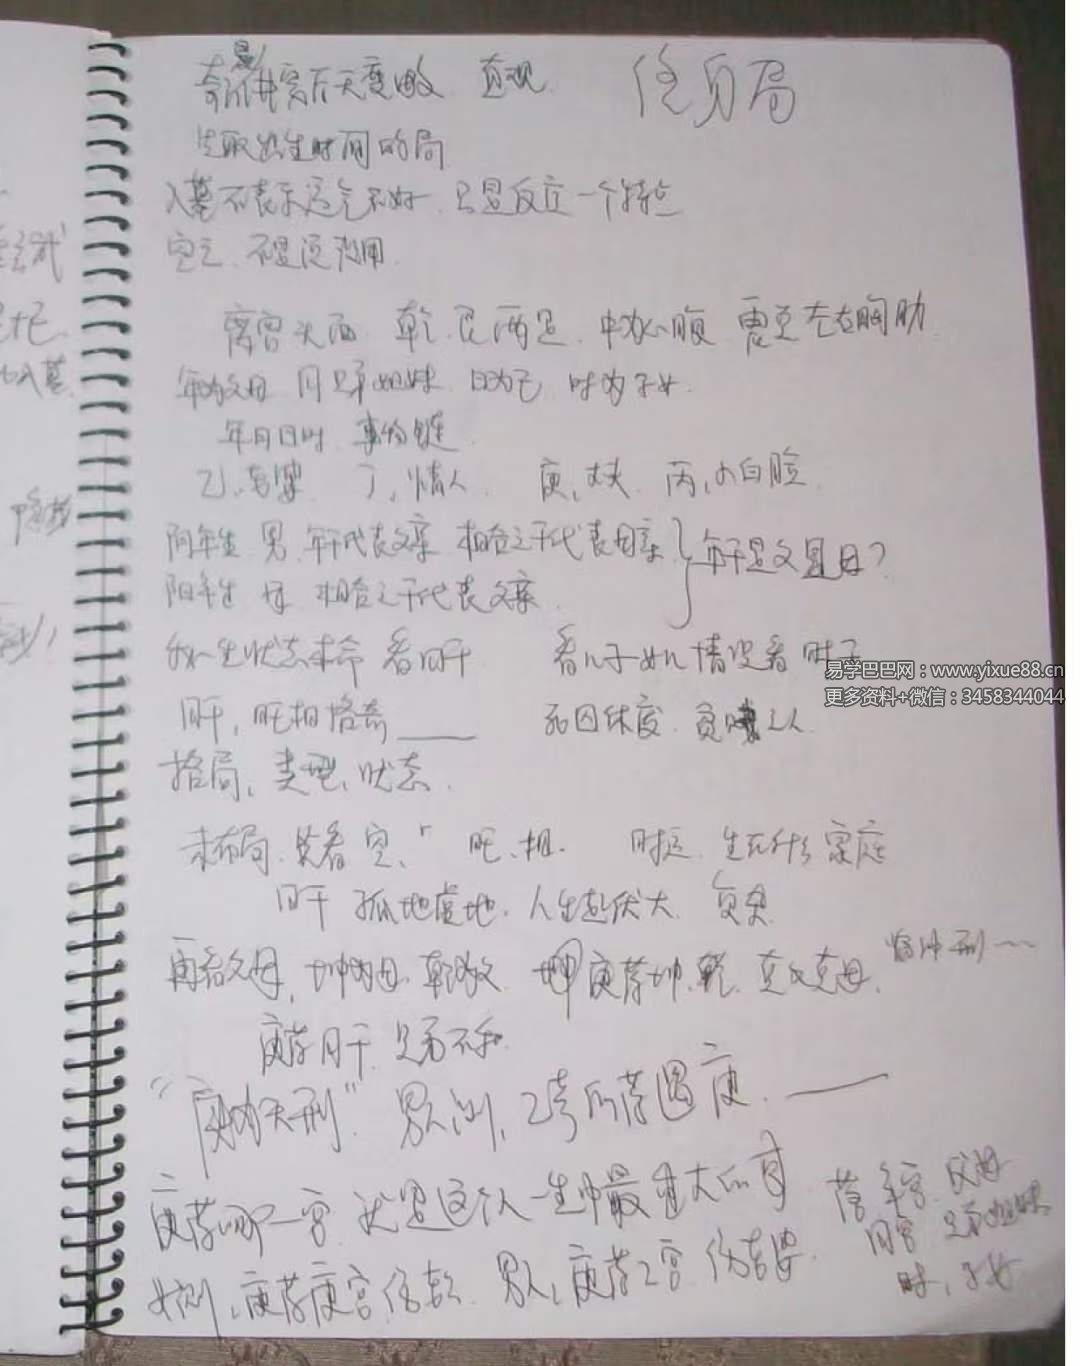 终身局
直观
先取出生时间的局
入墓不表示运气不好 只是反应一个特点
空亡、不是没有用
离宫头面 乾艮两足 中为心腹 震兑左右胸肋
年为父母 月兄弟姐妹 日为己 时为子女
年月日时 事物链
乙、老婆 丁、情人 庚、丈夫 丙、小白脸
阳年生 男 年干代表父亲 相合之干代表母亲 } 年干是父是母?
相合之干代表父亲
一生状态 看日干 看儿子女儿情况看时干
易学巴巴网:www.yixue88.cn
更多资料+微信:3458344044
日干,旺相格高 死囚休废 之人
格局、类型、状态
未布局、先看空、 旺、相 时运 生在什么家庭
日干 孤地虚地、人生起伏大
再看父母,坤为母 乾为父 庚落坤、乾 克父克母
临冲刑
庚落月干 兄弟不和
“庚为天刑” 男测、乙奇所落遇庚
庚落哪一宫 就是这个人一生中最大的
落年宫、父母
月宫 兄弟姐妹
时、子女
女测、庚落庚宫 男人、庚落乙宫